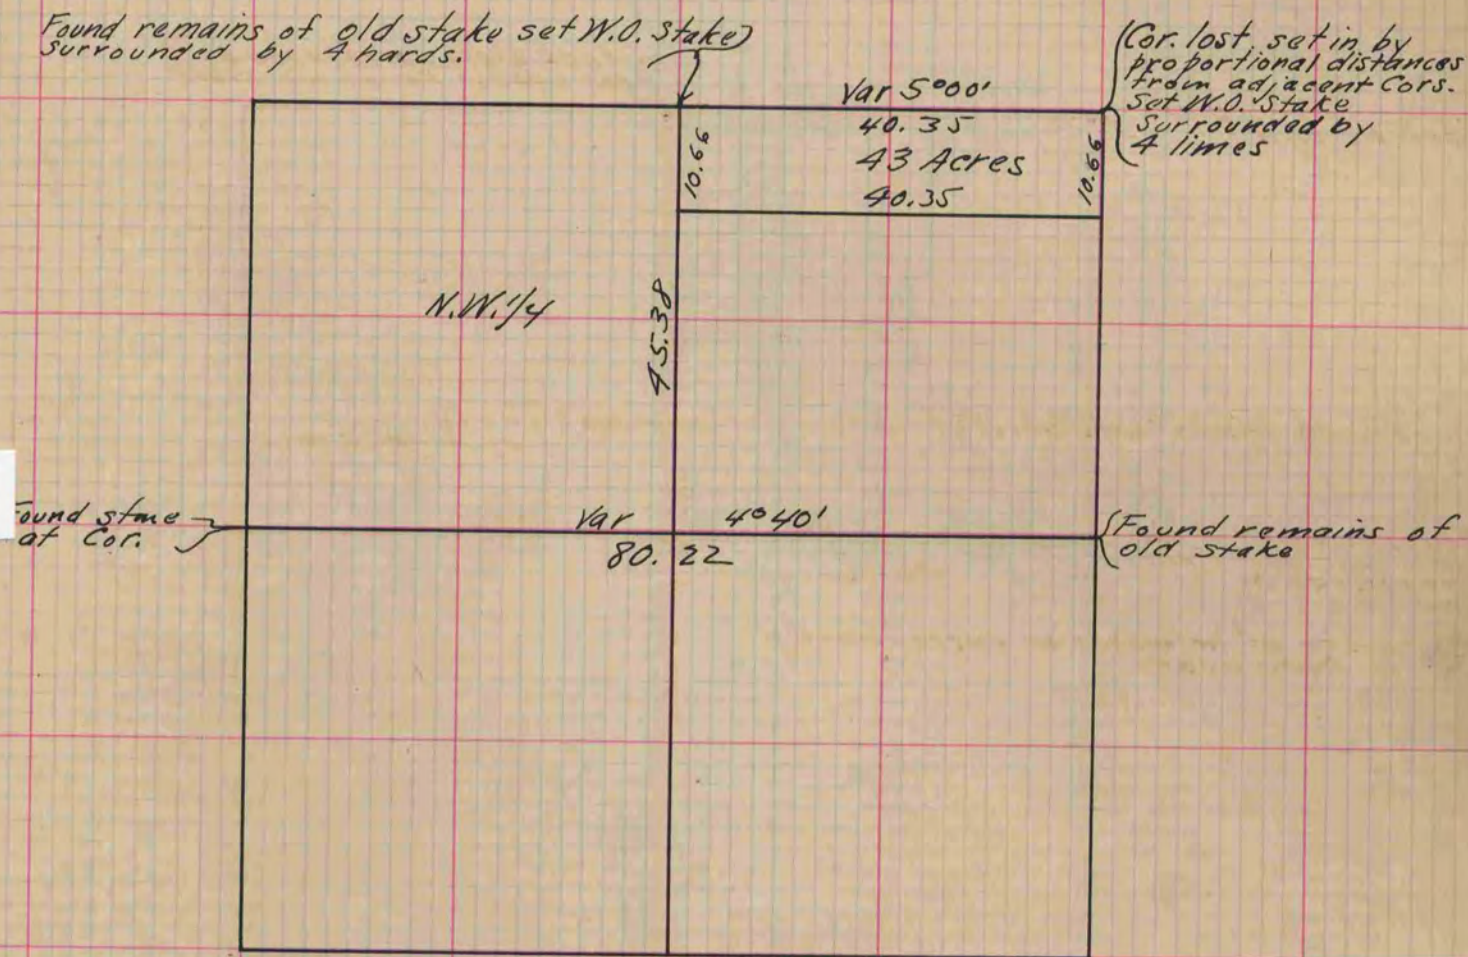 Found remains of old stake set W.O. Stake)
surrounded by 4 hards.
(Cor. lost, set in by
proportional distances
from adjacent Cors.
Set W.O. Stake
Surrounded by
4 limes
Var 5°00'
40.35
43 Acres
40.35
10.66
10.66
N.W.1/4
45.38
Found stone
at Cor.
Var 4°40'
80.22
Found remains of
old stake